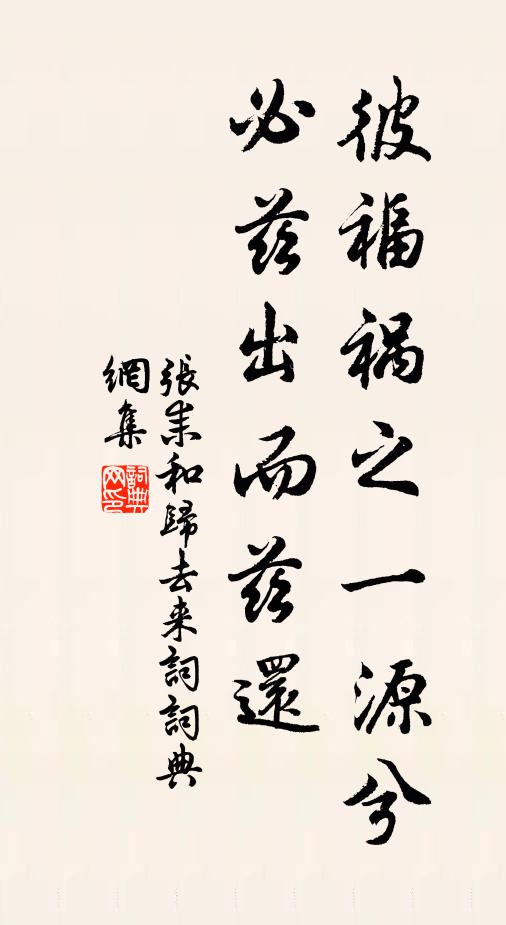 彼福禍之一源兮
必茲出而茲還
張耒和歸去来詞詞典
網集
詞典
网印